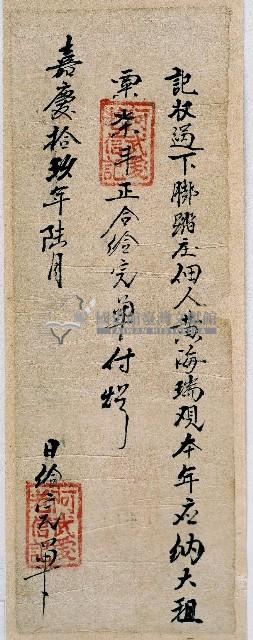 記收過下腳踏庄佃人黃海瑞观本年应納大租
粟柒斗正合給完單付炤
嘉慶拾玖年陸月
日給完單
國立臺灣文學館